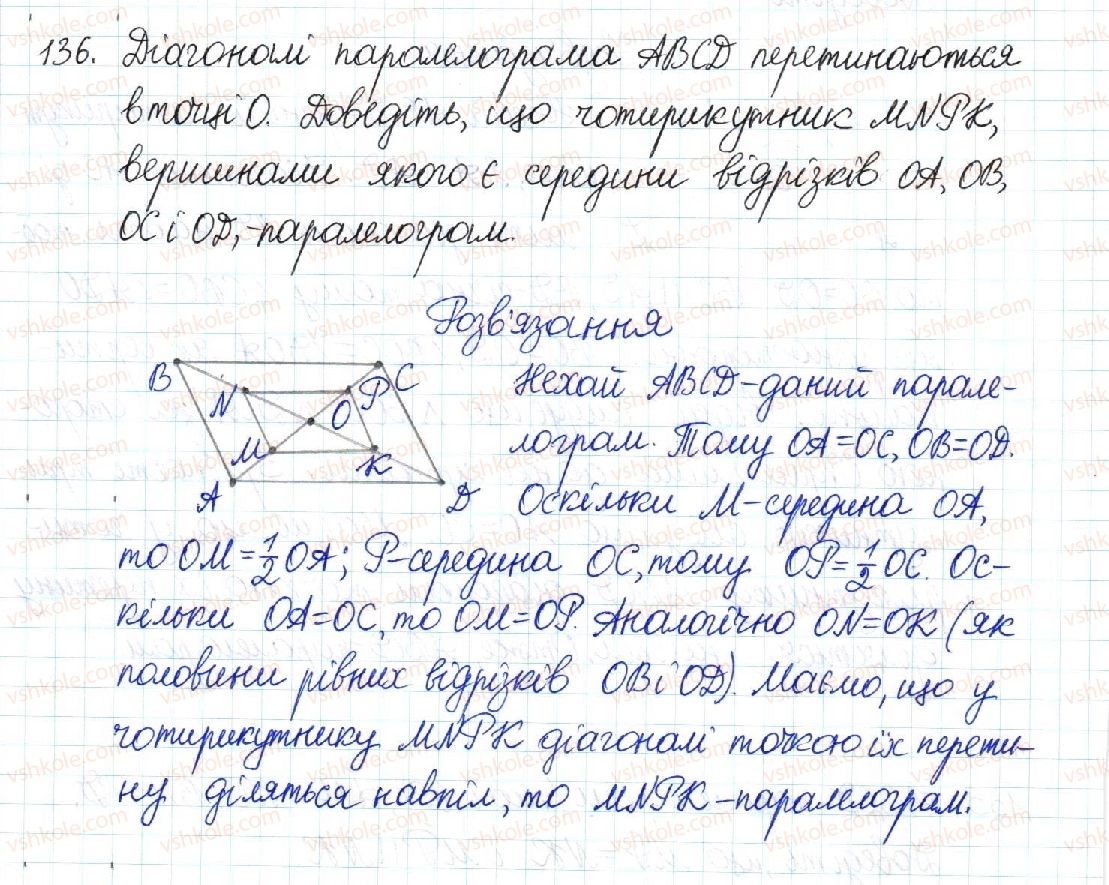 136. Діагоналі паралелограма ABCD перетинаються
в точці O. Доведіть, що чотирикутник MNPK,
вершинами якого є середини відрізків OA, OB,
OC і OD,-паралелограм.
Розв'язання
B N O P C
M K
A D
Нехай ABCD-даний парале-
лограм. Тому OA=OC, OB=OD.
Оскільки M-середина OA,
то OM=1/2 OA; P-середина OC, тому OP=1/2 OC. Ос-
кільки OA=OC, то OM=OP. Аналогічно ON=OK (як
половини рівних відрізків OB і OD). Маємо, що у
чотирикутнику MNPK діагоналі точкою їх перети-
ну діляться навпіл, то MNPK-паралелограм.
vshkole.com